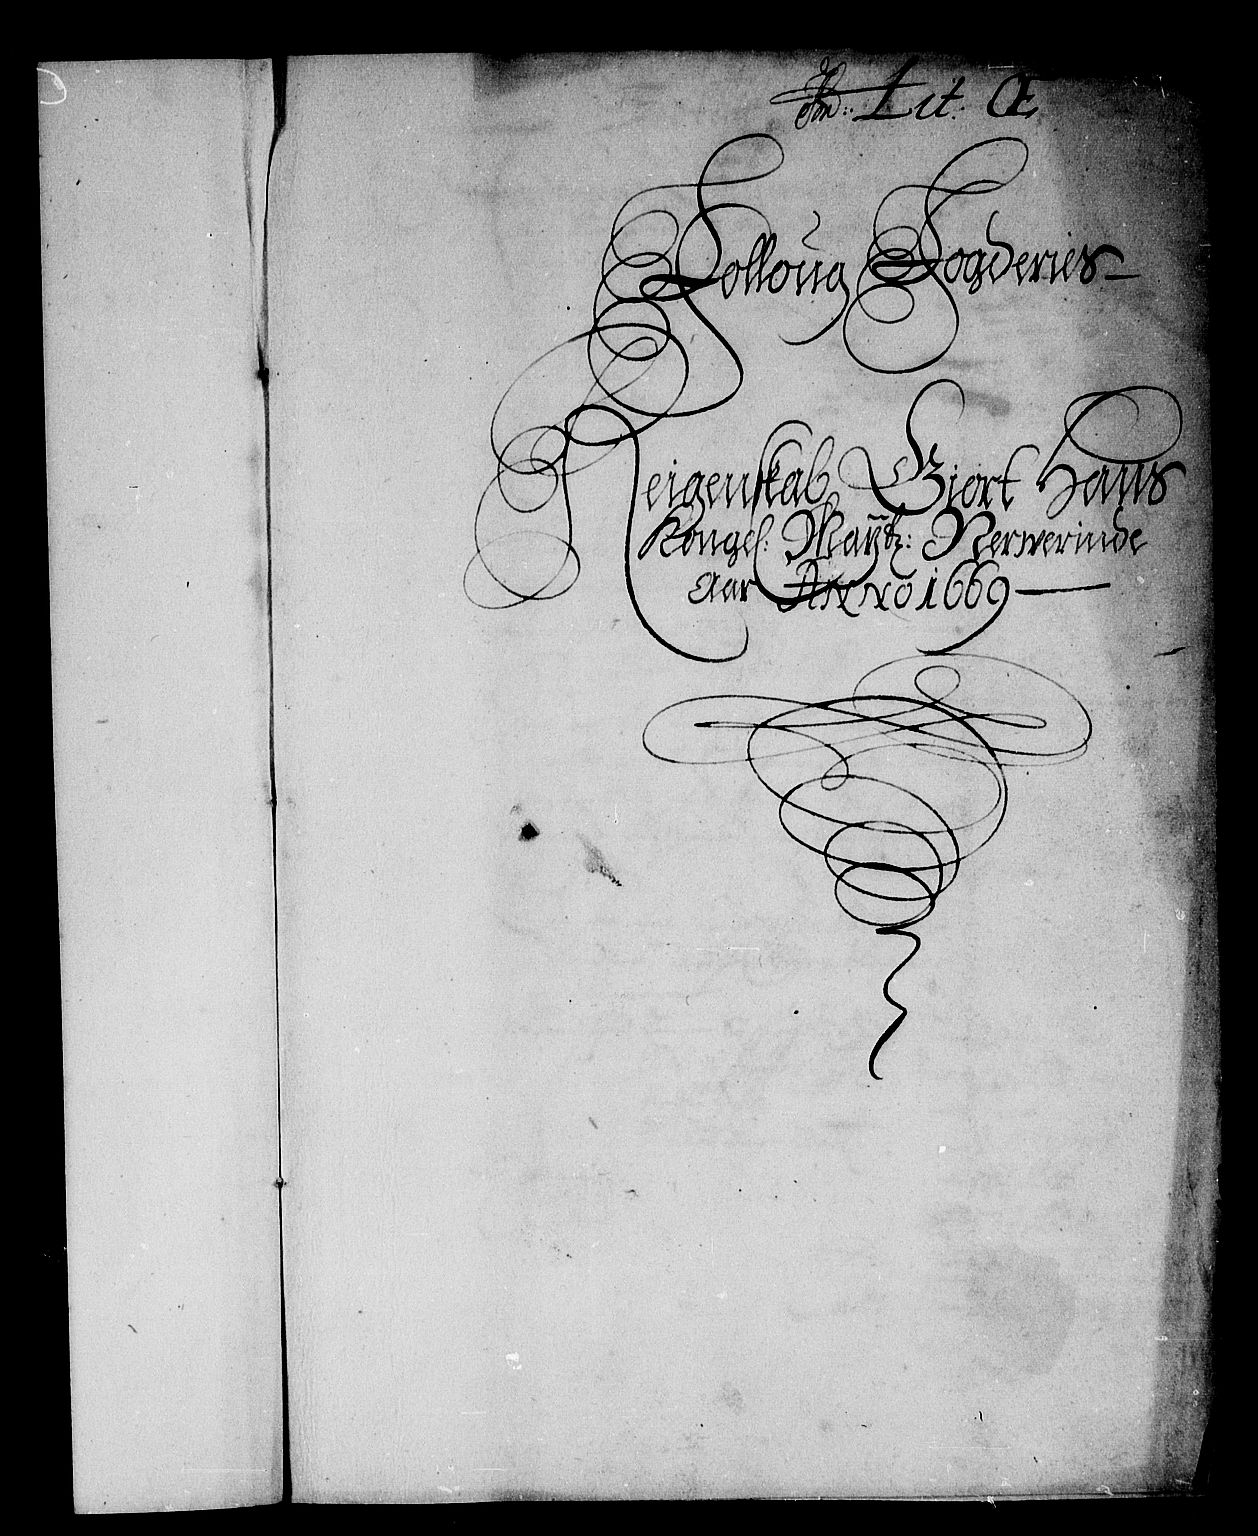 Lit. Œ
Folloug Fogderies
Reigenskab Giort Hans
Kongel: Maÿtz: Nerwerinde
Aar Anno 1669